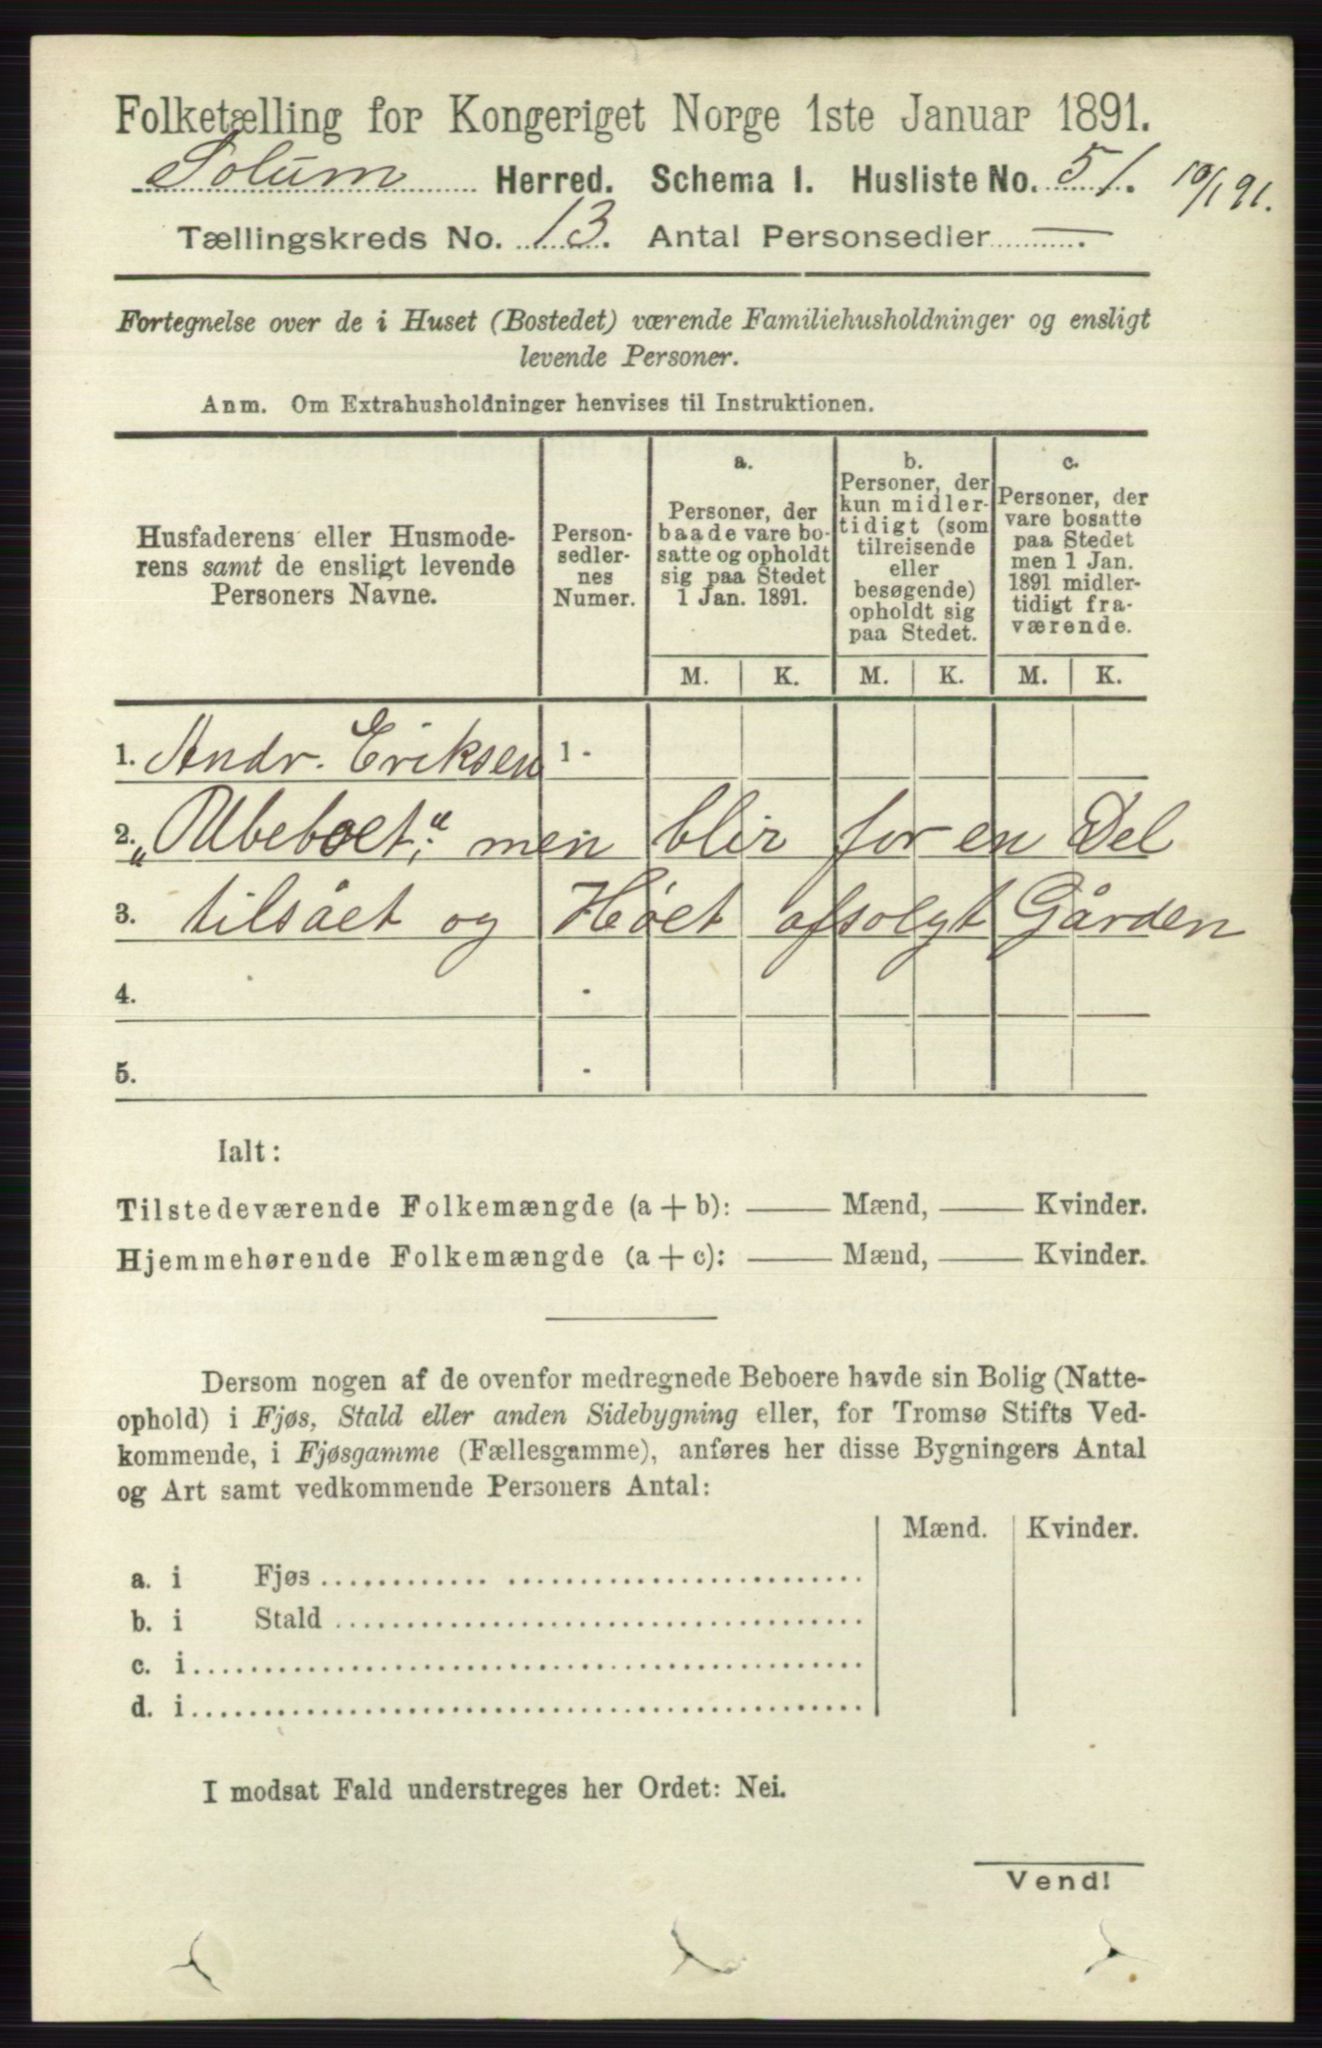 Folketælling for Kongeriget Norge 1ste Januar 1891.
Solum Herred. Schema I. Husliste No. 51. 10/1 91.
Tællingskreds No. 13. Antal Personsedler —.
Fortegnelse over de i Huset (Bostedet) værende Familiehusholdninger og ensligt
levende Personer.
Anm. Om Extrahusholdninger henvises til Instruktionen.
Husfaderens eller Husmode-
rens samt de ensligt levende
Personers Navne.
Person-
sedler-
nes
Numer.
a.
Personer, der
baade vare bo-
satte og opholdt
sig paa Stedet
1 Jan. 1891.
b.
Personer, der
kun midler-
tidigt (som
tilreisende
eller
besøgende)
opholdt sig
paa Stedet.
c.
Personer, der
vare bosatte
paa Stedet
men 1 Jan.
1891 midler-
tidigt fra-
værende.
M. K. M. K. M. K.
1. Andr. Eriksen 1 -
2. „Ubeboet;“ men blir for en Del
3. tilsået og Høet afsolgt Gården
4. -
5. -
Ialt:
Tilstedeværende Folkemængde (a + b): —— Mænd, —— Kvinder.
Hjemmehørende Folkemængde (a + c): —— Mænd, —— Kvinder.
Dersom nogen af de ovenfor medregnede Beboere havde sin Bolig (Natte-
ophold) i Fjøs, Stald eller anden Sidebygning eller, for Tromsø Stifts Ved-
kommende, i Fjøsgamme (Fællesgamme), anføres her disse Bygningers Antal
og Art samt vedkommende Personers Antal:
Mænd. Kvinder.
a. i Fjøs
b. i Stald
c. i
d. i
I modsat Fald understreges her Ordet: Nei.
Vend!